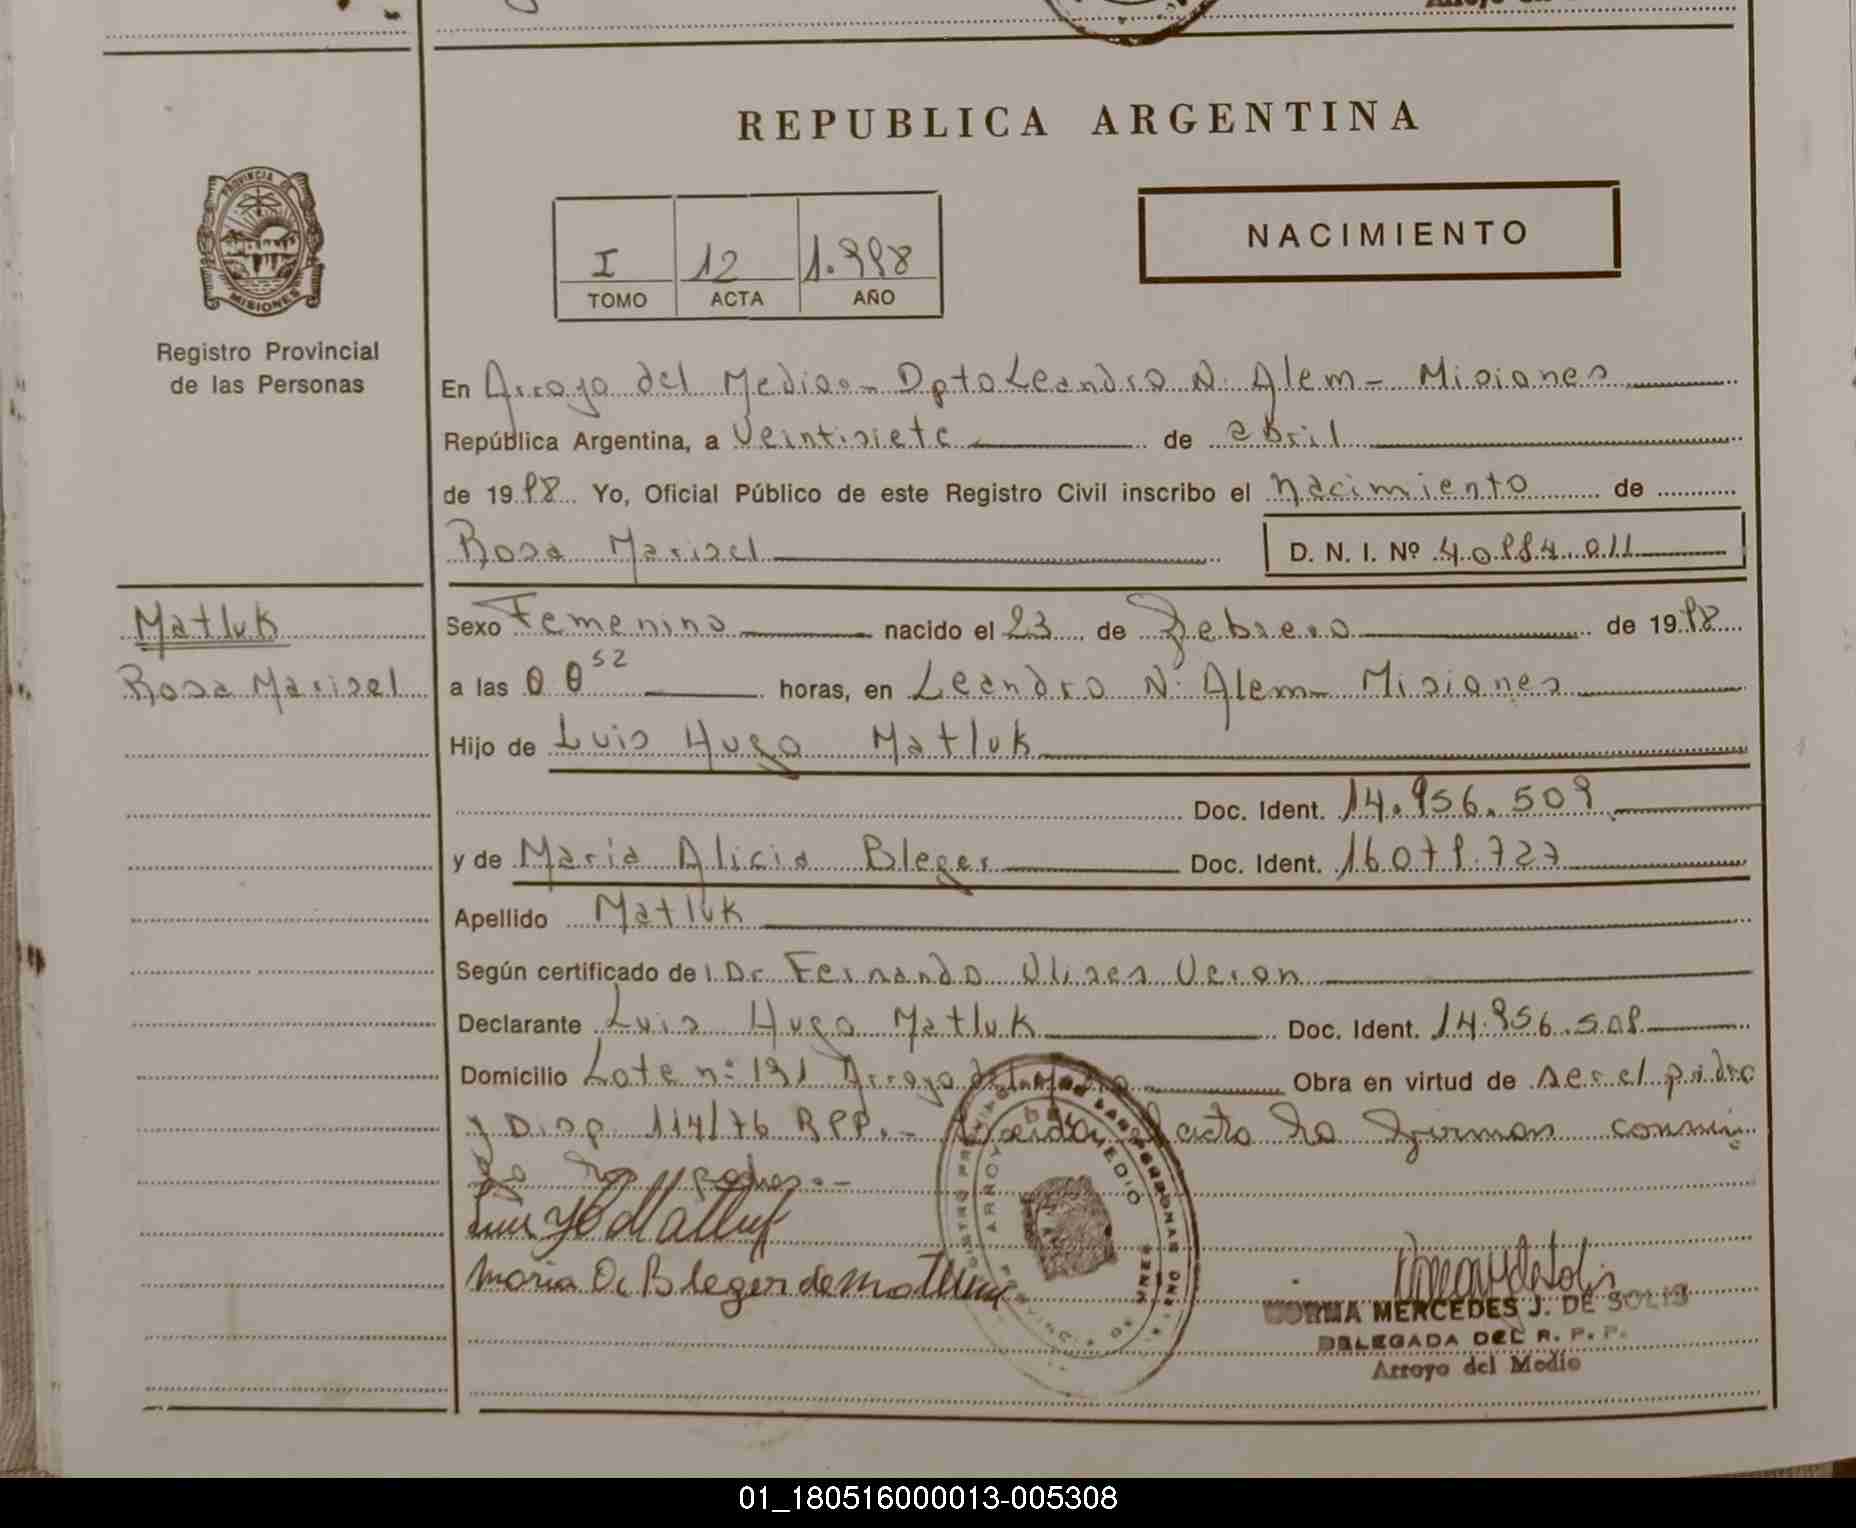 REPUBLICA ARGENTINA
PROVINCIA DE
MISIONES
Registro Provincial
de las Personas
I 12 1.998
TOMO ACTA AÑO
NACIMIENTO
En Arroyo del Medio.- Dpto Leandro N. Alem - Misiones
República Argentina, a Veintisiete de abril
de 1998 Yo, Oficial Público de este Registro Civil inscribo el Nacimiento de
Rosa Marisel D. N. I. Nº 40.984.011
Matluk
Rosa Marisel
Sexo Femenino nacido el 23 de Febrero de 1998
a las 00 52 horas, en Leandro N. Alem - Misiones
Hijo de Luis Hugo Matluk
Doc. Ident. 14.956.509
y de Maria Alicia Bleger Doc. Ident. 16.079.727
Apellido Matluk
Según certificado de Dr. Fernando Ulises Veron
Declarante Luis Hugo Matluk Doc. Ident. 14.956.509
Domicilio Lote nº 191 Arroyo del Medio Obra en virtud de ser el padre
y Disp. 114/76 RPP.- Leida el acta la firman conmi
go los padres.-
Luis H Matluk
Maria A. Bleger de Matluk
NORMA MERCEDES J. DE SOLIS
DELEGADA DEL R. P. P.
Arroyo del Medio
01_180516000013-005308